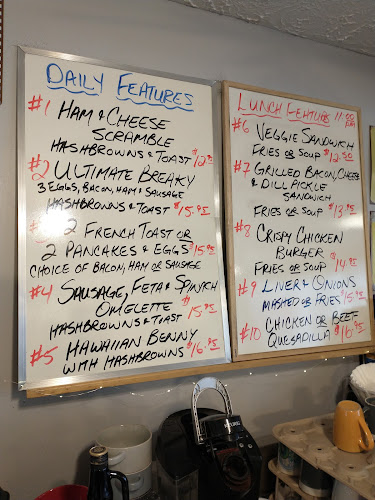 DAILY FEATURES
#1 HAM & CHEESE
SCRAMBLE
HASHBROWNS & TOAST
#2 ULTIMATE BREAKY
3 EGGS, BACON, HAM & SAUSAGE
HASHBROWNS & TOAST $15.95
2 FRENCH TOAST OR
2 PANCAKES & EGGS $15.95
CHOICE OF BACON, HAM OR SAUSAGE
#4 SAUSAGE, FETA & SPINICH
OMELETTE $15.95
HASHBROWNS & TOAST
#5 HAWAIIAN BENNY
WITH HASHBROWNS $16.95
LUNCH FEATURES
#6 VEGGIE SANDWICH
FRIES OR SOUP $12.50
#7 GRILLED BACON, CHEESE
& DILL PICKLE
SANDWICH
FRIES OR SOUP
#8 CRISPY CHICKEN
BURGER
FRIES OR SOUP $14.95
#9 LIVER & ONIONS
MASHED OR FRIES $15.95
#10 CHICKEN OR BEEF
QUESADILLA $16.95
KEURIG